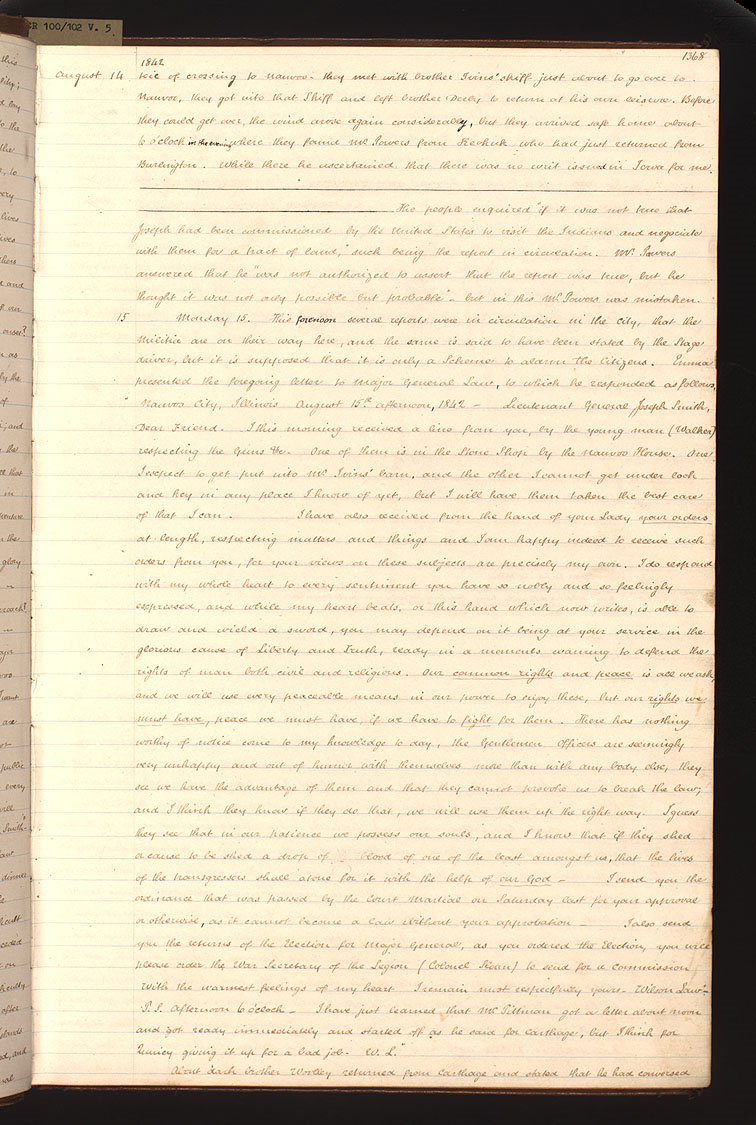 CR 100/102 V. 5
1368
1842
August 14 tude of crossing to Nauvoo - they met with brother Ivins' skiff just about to go over to
Nauvoo, they got into that Skiff and left brother Derby to return at his own leisure. Before
they could get over, the wind arose again considerably, but they arrived safe home about
6 o'clock in the evening where they found Mr Powers from Keokuk who had just returned from
Burlington. While there he ascertained that there was no writ issued in Iowa for me.
The people enquired "if it was not true that
Joseph had been commissioned by the United States to visit the Indians and negociate
with them for a tract of land," such being the report in circulation. Mr Powers
answered that he "was not authorized to assert that the report was true, but he
thought it was not only possible but probable" - but in this Mr Powers was mistaken.
15 Monday 15. This forenoon several reports were in circulation in the city, that the
Militia are on their way here, and the same is said to have been stated by the Stage
driver, but it is supposed that it is only a Scheme to alarm the Citizens. Emma
presented the foregoing letter to Major General Law, to which he responded as follows,
" Nauvoo City, Illinois August 15th afternoon, 1842 - Lieutenant General Joseph Smith,
Dear Friend. I this morning received a line from you, by the young man (Walker)
respecting the Guns &c. One of them is in the Stone Shop by the Nauvoo House. One
I expect to get put into Mr Ivins' barn, and the other I cannot get under lock
and key in any place I know of yet, but I will have them taken the best care
of that I can. I have also received from the hand of your Lady your orders
at length, respecting matters and things and I am happy indeed to receive such
orders from you, for your views on these subjects are precisely my own. I do respond
with my whole heart to every sentiment you have so nobly and so feelingly
expressed, and while my heart beats, or this hand which now writes, is able to
draw and wield a sword, you may depend on it being at your service in the
glorious cause of Liberty and Truth, ready in a moments warning to defend the
rights of man both civil and religious. Our common rights and peace is all we ask,
and we will use every peaceable means in our power to enjoy these, but our rights we
must have, peace we must have, if we have to fight for them. There has nothing
worthy of notice come to my knowledge to day, the Gentlemen Officers are seemingly
very unhappy and out of humor with themselves more than with any body else, they
see we have the advantage of them and that they cannot provoke us to break the law;
and I think they know if they do that, we will use them up the right way. I guess
they see that in our patience we possess our souls, and I know that if they shed
or cause to be shed a drop of blood of one of the least amongst us, that the lives
of the transgressors shall atone for it with the help of our God - I send you the
ordinance that was passed by the Court Martial on Saturday last for your approval
or otherwise, as it cannot become a law without your approbation - I also send
you the returns of the Election for Major General, as you ordered the Election, you will
please order the War Secretary of the Legion (Colonel Sloan) to send for a commission.
With the warmest feelings of my heart I remain most respectfully yours. Wilson Law -
P.S. Afternoon 6 o'clock - I have just learned that Mr Pittman got a letter about noon
and got ready immediately and started off as he said for Carthage, but I think for
Quincy giving it up for a bad job. W. L."
About dark brother Woolley returned from Carthage and stated that he had conversed